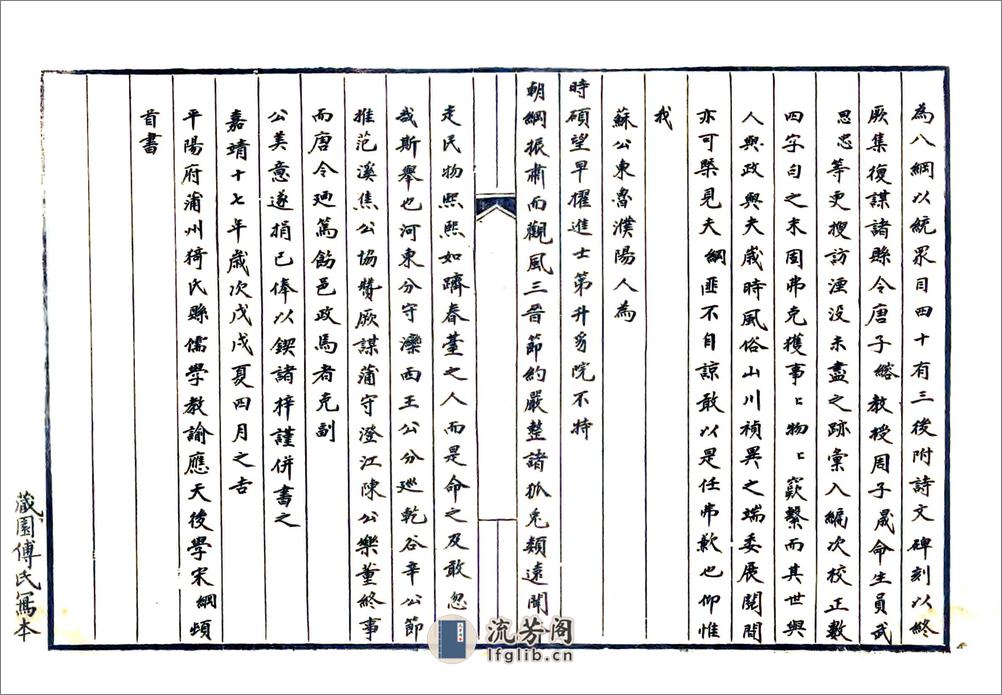 為八綱以統眾目四十有三後附詩文碑刻以終
厥集復謀諸縣令唐子綹教授周子晟命生員武
思忠等更搜訪湮没未盡之跡彙入編次校正數
四字句之末固弗克獲事〻物〻竅繫而其世與
人與政與夫歲時風俗山川禎異之端委展閱間
亦可槩見夫綱匪不自諒敢以是任弗歉也仰惟
我
蘇公東魯濮陽人為
時碩望早擢進士第升烏院不特
朝綱振肅而觀風三晉節約嚴整諸狐兔類遠聞
走民物熙熙如躋春臺之人而是命之及敢忽
哉斯舉也河東分守灤西王公分廵乾谷辛公節
推范溪焦公協贊厥謀蒲守澄江陳公樂董終事
而唐令廼篤飭邑政焉者克副
公美意遂捐己俸以鍥諸梓謹併書之
嘉靖十七年歲次戊戌夏四月之吉
平陽府蒲州猗氏縣儒學教諭應天後學宋綱頓
首書
藏園傅氏寫本
流芳阁
lfglib.cn